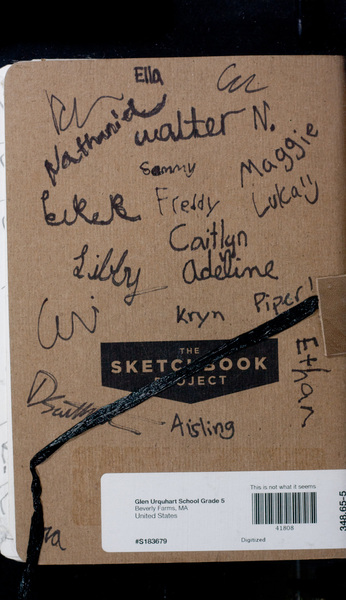 Ella
Nathaniel
walter N.
Sammy
Maggie
Freddy
Luka
Caitlyn
Libby
adeline
Kryn
Piper!
THE
SKETCHBOOK
PROJECT
Ethan
Aisling
This is not what it seems
Glen Urquhart School Grade 5
Beverly Farms, MA
United States
41808
#S183679
Digitized
348.65-5